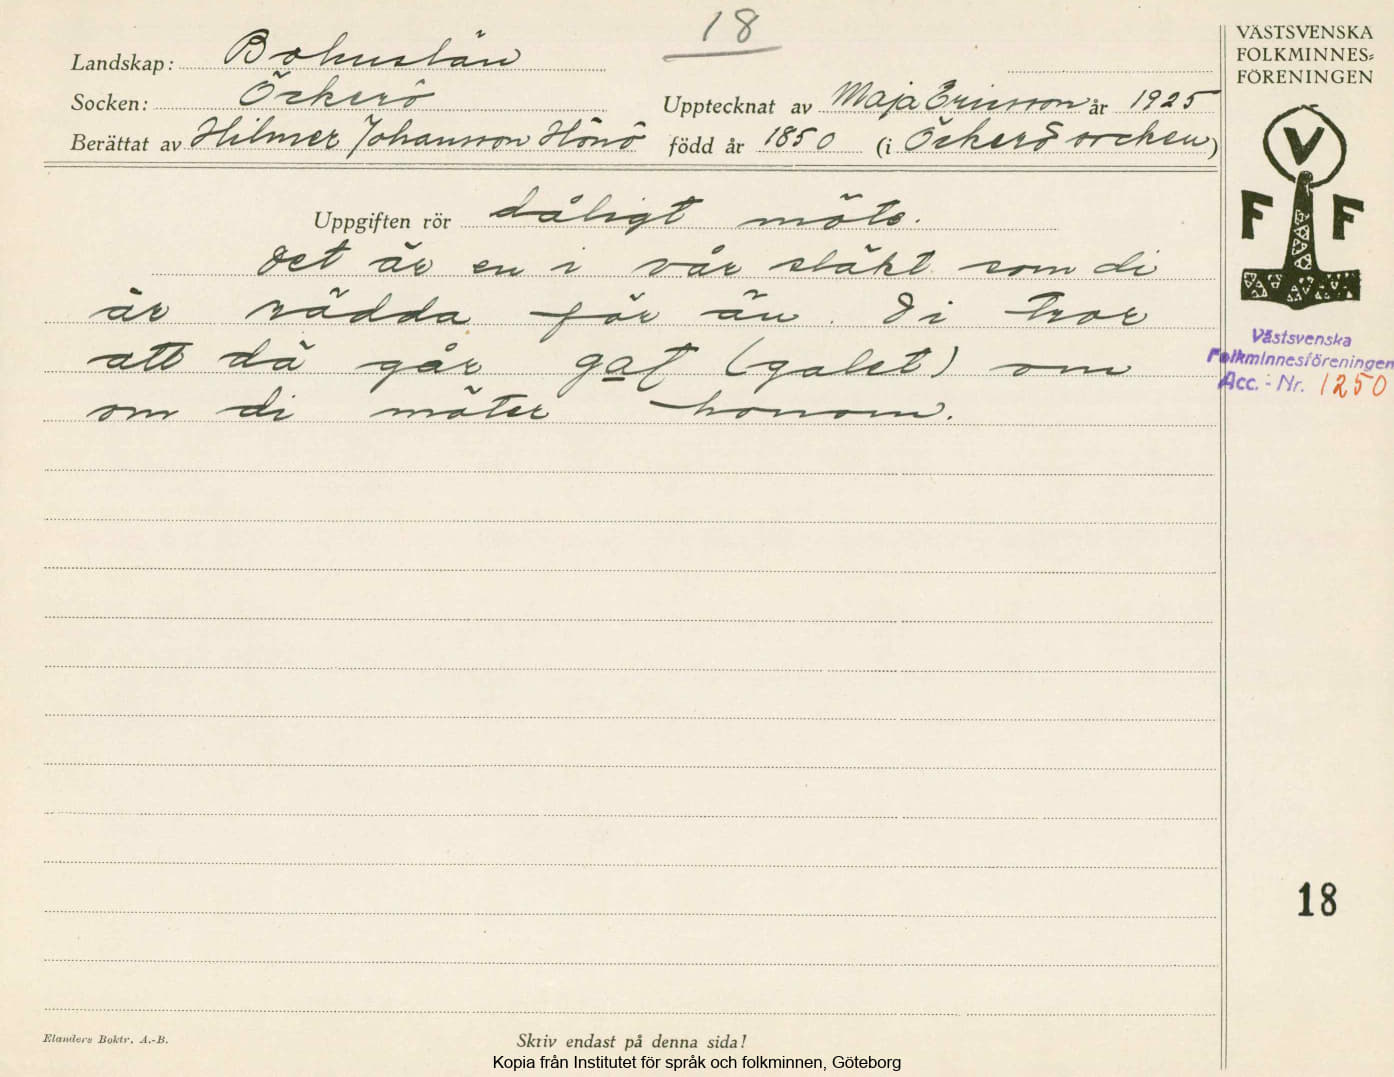 18
Landskap: Bohuslän
Socken: Öckerö
Upptecknat av Maja Ericsson år 1925
Berättat av Hilmer Johansson Hönö född år 1850 (i Öckerö socken)
VÄSTSVENSKA
FOLKMINNES=
FÖRENINGEN
V
F F
Västsvenska
Folkminnesföreningen
Acc.-Nr. 1250
Uppgiften rör dåligt möte.
Det är en i vår släkt som di
är rädda för än. Di tror
att dä går gat (galet) om
om di möter honom.
18
Elanders Boktr. A.-B.
Skriv endast på denna sida!
Kopia från Institutet för språk och folkminnen, Göteborg